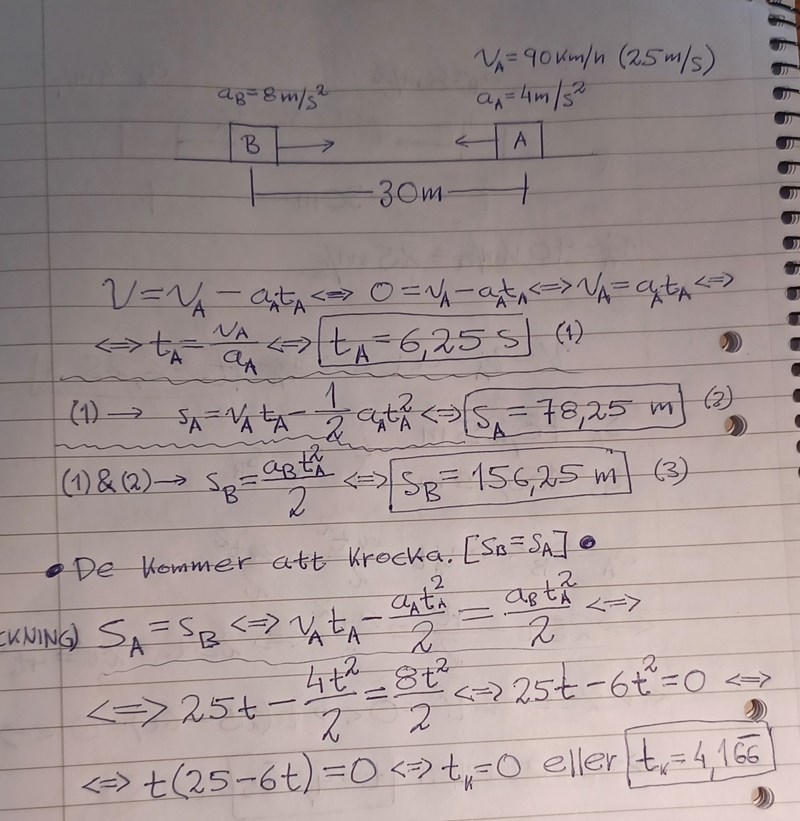 V_A = 90 km/h (25 m/s)
a_B = 8 m/s² a_A = 4 m/s²
B A
30m
V = V_A − a_A t_A ⇔ 0 = V_A − a_A t_A ⇔ V_A = a_A t_A ⇔
⇔ t_A = V_A / a_A ⇔ t_A = 6,25 s (1)
(1) → s_A = V_A t_A − 1/2 a_A t_A² ⇔ s_A = 78,25 m (2)
(1) & (2) → s_B = a_B t_A² / 2 ⇔ s_B = 156,25 m (3)
• De kommer att krocka. [s_B = s_A] •
CKNING) s_A = s_B ⇔ V_A t_A − a_A t_A² / 2 = a_B t_A² / 2 ⇔
⇔ 25t − 4t² / 2 = 8t² / 2 ⇔ 25t − 6t² = 0 ⇔
⇔ t(25 − 6t) = 0 ⇔ t_K = 0 eller t_K = 4,166